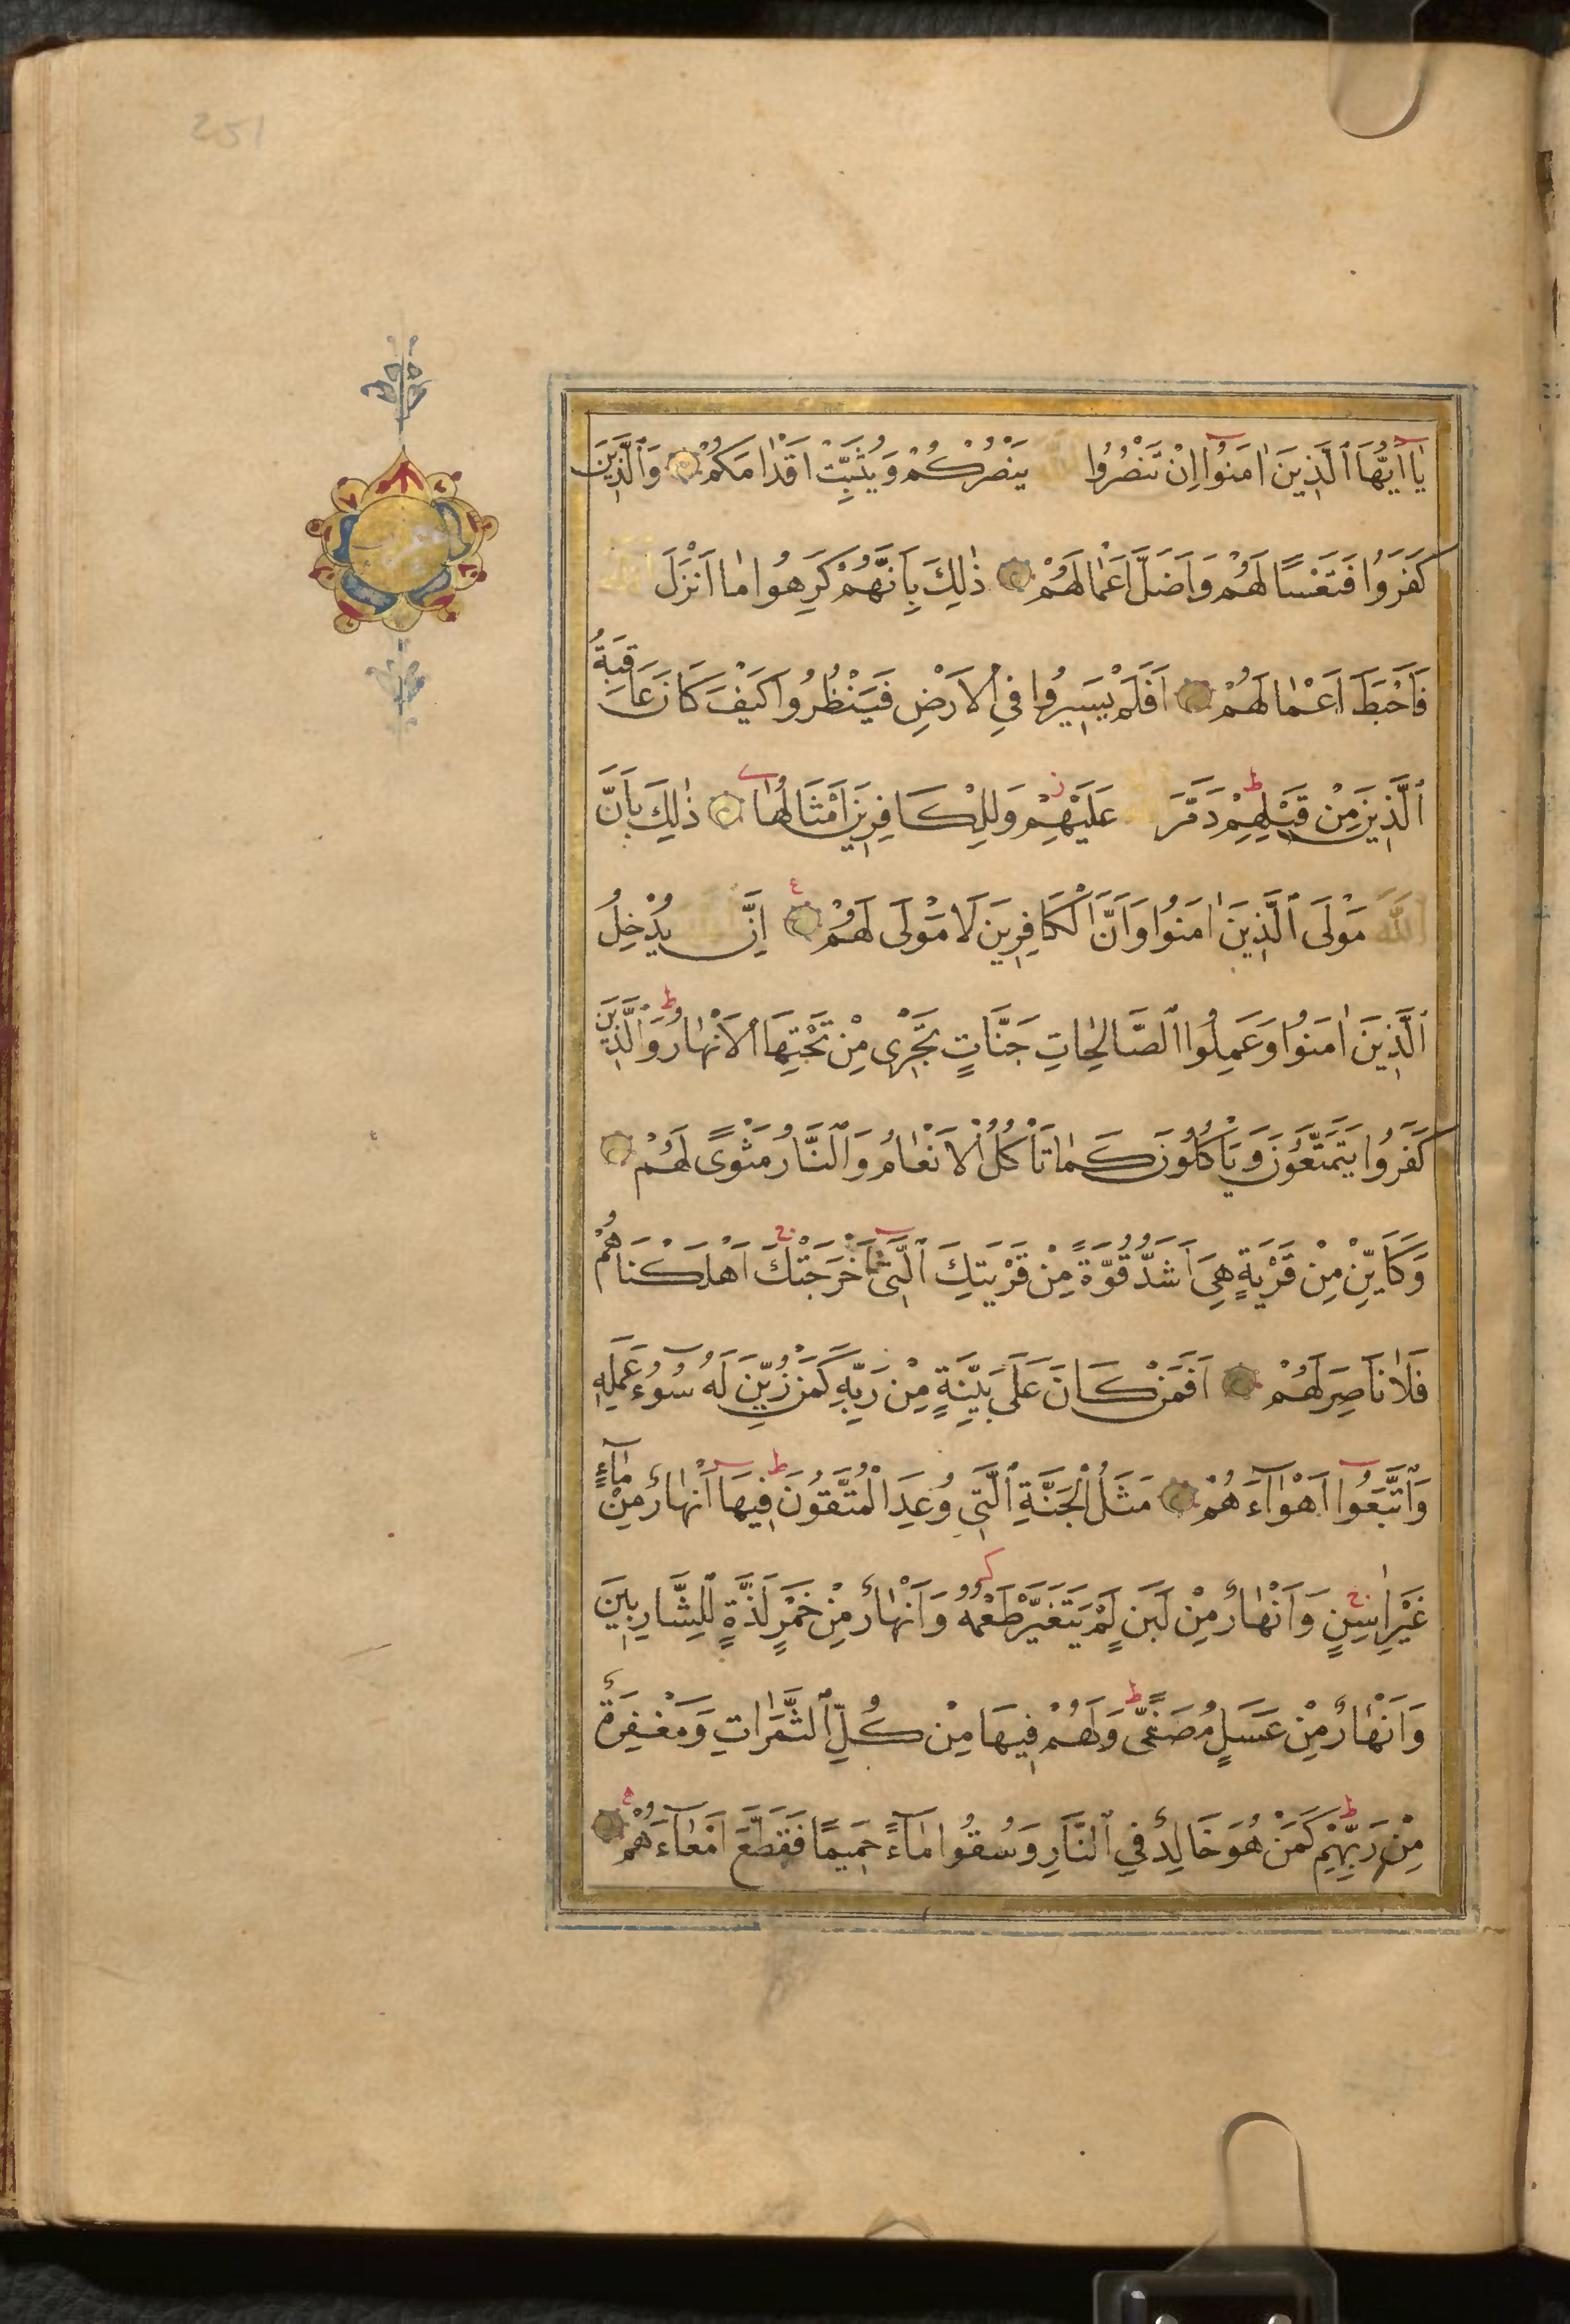 251
يَا اَيُّهَا ٱلَّذِينَ اٰمَنُوا اِنْ تَنْصُرُوا اللّٰهَ يَنْصُرْكُمْ وَيُثَبِّتْ اَقْدَامَكُمْ وَٱلَّذِينَ
كَفَرُوا فَتَعْسًا لَهُمْ وَاَضَلَّ اَعْمَالَهُمْ ذٰلِكَ بِاَنَّهُمْ كَرِهُوا مَا اَنْزَلَ اللّٰهُ
فَاَحْبَطَ اَعْمَالَهُمْ اَفَلَمْ يَسِيرُوا فِي ٱلْاَرْضِ فَيَنْظُرُوا كَيْفَ كَانَ عَاقِبَةُ
ٱلَّذِينَ مِنْ قَبْلِهِمْ دَمَّرَ اللّٰهُ عَلَيْهِمْ وَلِلْكَافِرِينَ اَمْثَالُهَا ذٰلِكَ بِاَنَّ
اللّٰهَ مَوْلَى ٱلَّذِينَ اٰمَنُوا وَاَنَّ ٱلْكَافِرِينَ لَا مَوْلَى لَهُمْ اِنَّ اللّٰهَ يُدْخِلُ
ٱلَّذِينَ اٰمَنُوا وَعَمِلُوا ٱلصَّالِحَاتِ جَنَّاتٍ تَجْرِى مِنْ تَحْتِهَا ٱلْاَنْهَارُ وَٱلَّذِينَ
كَفَرُوا يَتَمَتَّعُونَ وَيَأْكُلُونَ كَمَا تَأْكُلُ ٱلْاَنْعَامُ وَٱلنَّارُ مَثْوًى لَهُمْ
وَكَاَيِّنْ مِنْ قَرْيَةٍ هِيَ اَشَدُّ قُوَّةً مِنْ قَرْيَتِكَ ٱلَّتِى اَخْرَجَتْكَ اَهْلَكْنَاهُمْ
فَلَا نَاصِرَ لَهُمْ اَفَمَنْ كَانَ عَلَى بَيِّنَةٍ مِنْ رَبِّهِ كَمَنْ زُيِّنَ لَهُ سُوءُ عَمَلِهِ
وَٱتَّبَعُوا اَهْوَآءَهُمْ مَثَلُ ٱلْجَنَّةِ ٱلَّتِى وُعِدَ ٱلْمُتَّقُونَ فِيهَا اَنْهَارٌ مِنْ مَآءٍ
غَيْرِ اٰسِنٍ وَاَنْهَارٌ مِنْ لَبَنٍ لَمْ يَتَغَيَّرْ طَعْمُهُ وَاَنْهَارٌ مِنْ خَمْرٍ لَذَّةٍ لِلشَّارِبِينَ
وَاَنْهَارٌ مِنْ عَسَلٍ مُصَفًّى وَلَهُمْ فِيهَا مِنْ كُلِّ ٱلثَّمَرَاتِ وَمَغْفِرَةٌ
مِنْ رَبِّهِمْ كَمَنْ هُوَ خَالِدٌ فِي ٱلنَّارِ وَسُقُوا مَآءً حَمِيمًا فَقَطَّعَ اَمْعَآءَهُمْ